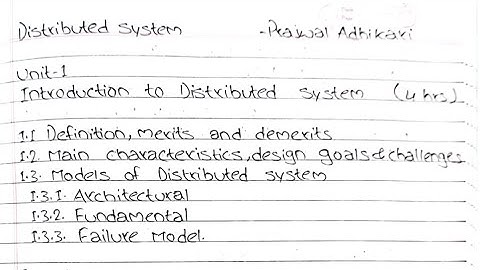 Distributed System - Prajwal Adhikari
Unit-1
Introduction to Distributed System (4 hrs)
1.1 Definition, merits and demerits
1.2. Main characteristics, design goals & challenges
1.3. Models of Distributed system
1.3.1. Architectural
1.3.2. Fundamental
1.3.3. Failure Model.